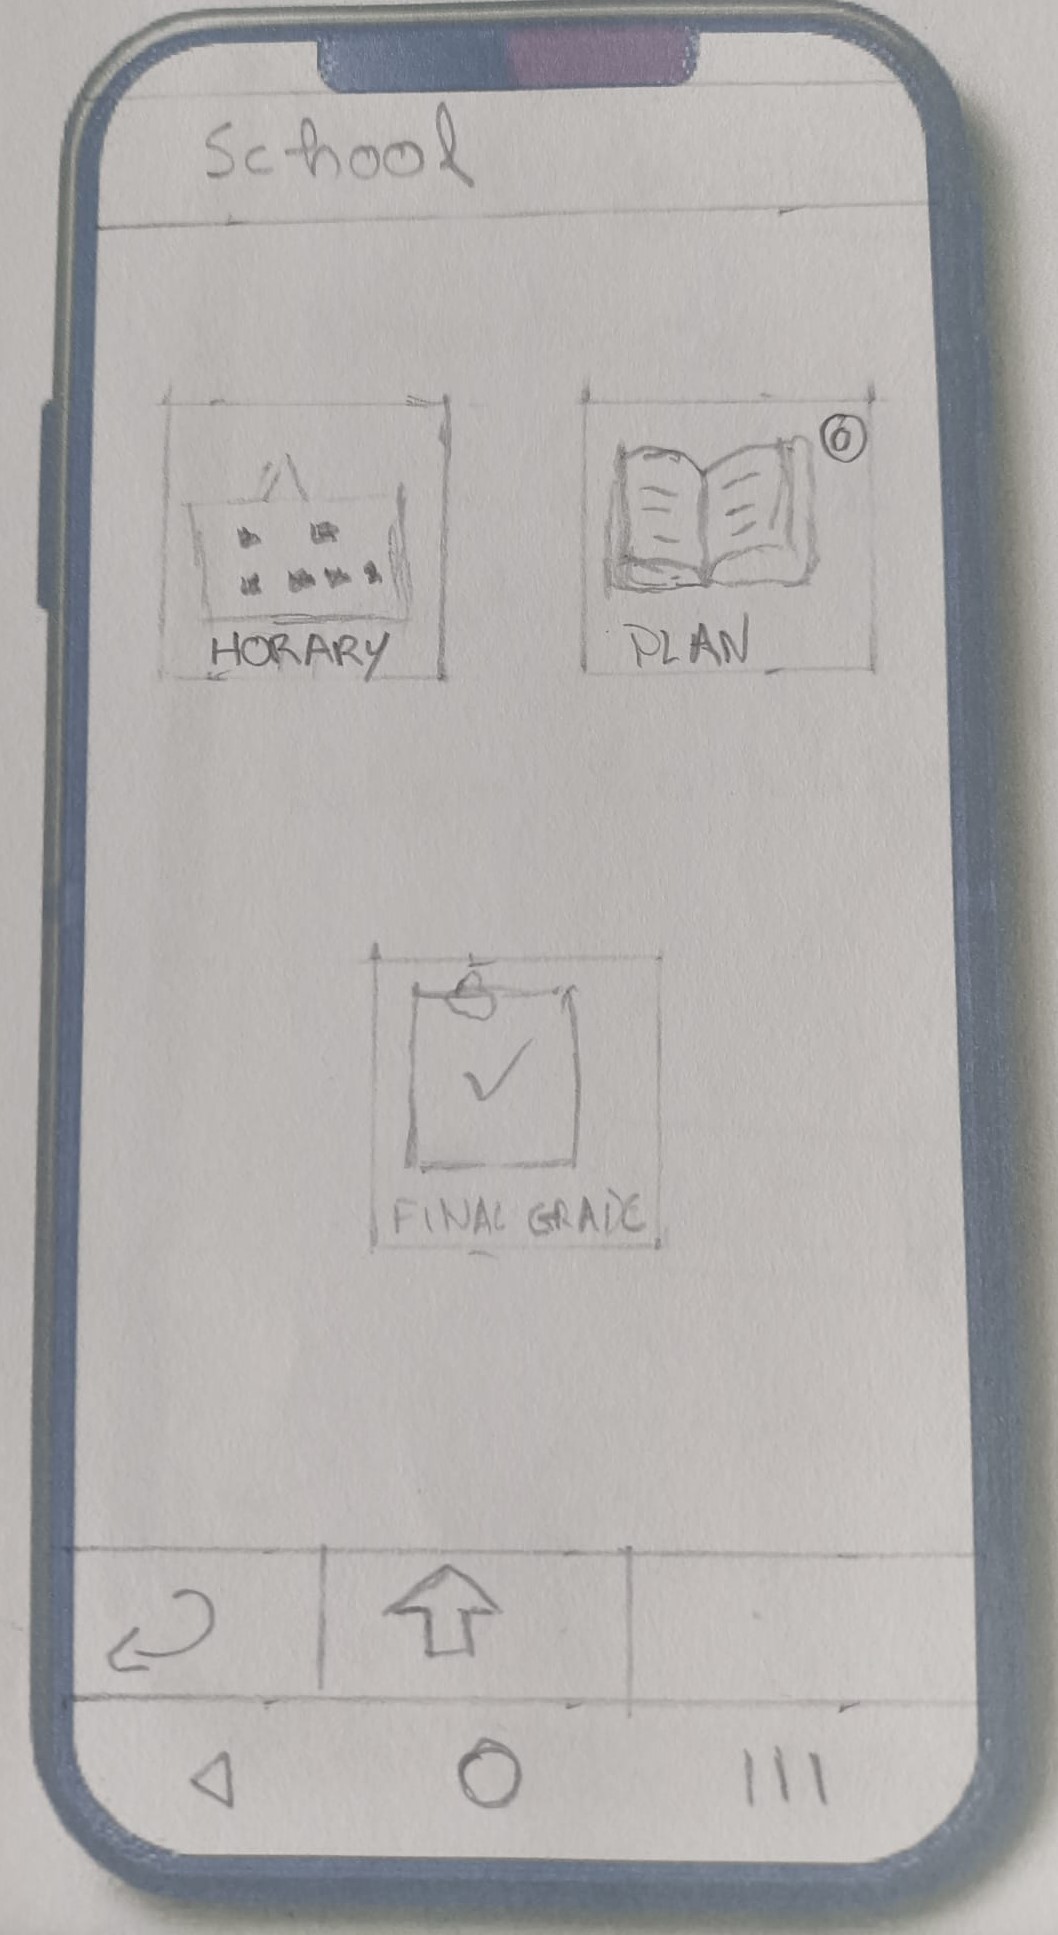 School
6
HORARY
PLAN
FINAL GRADE